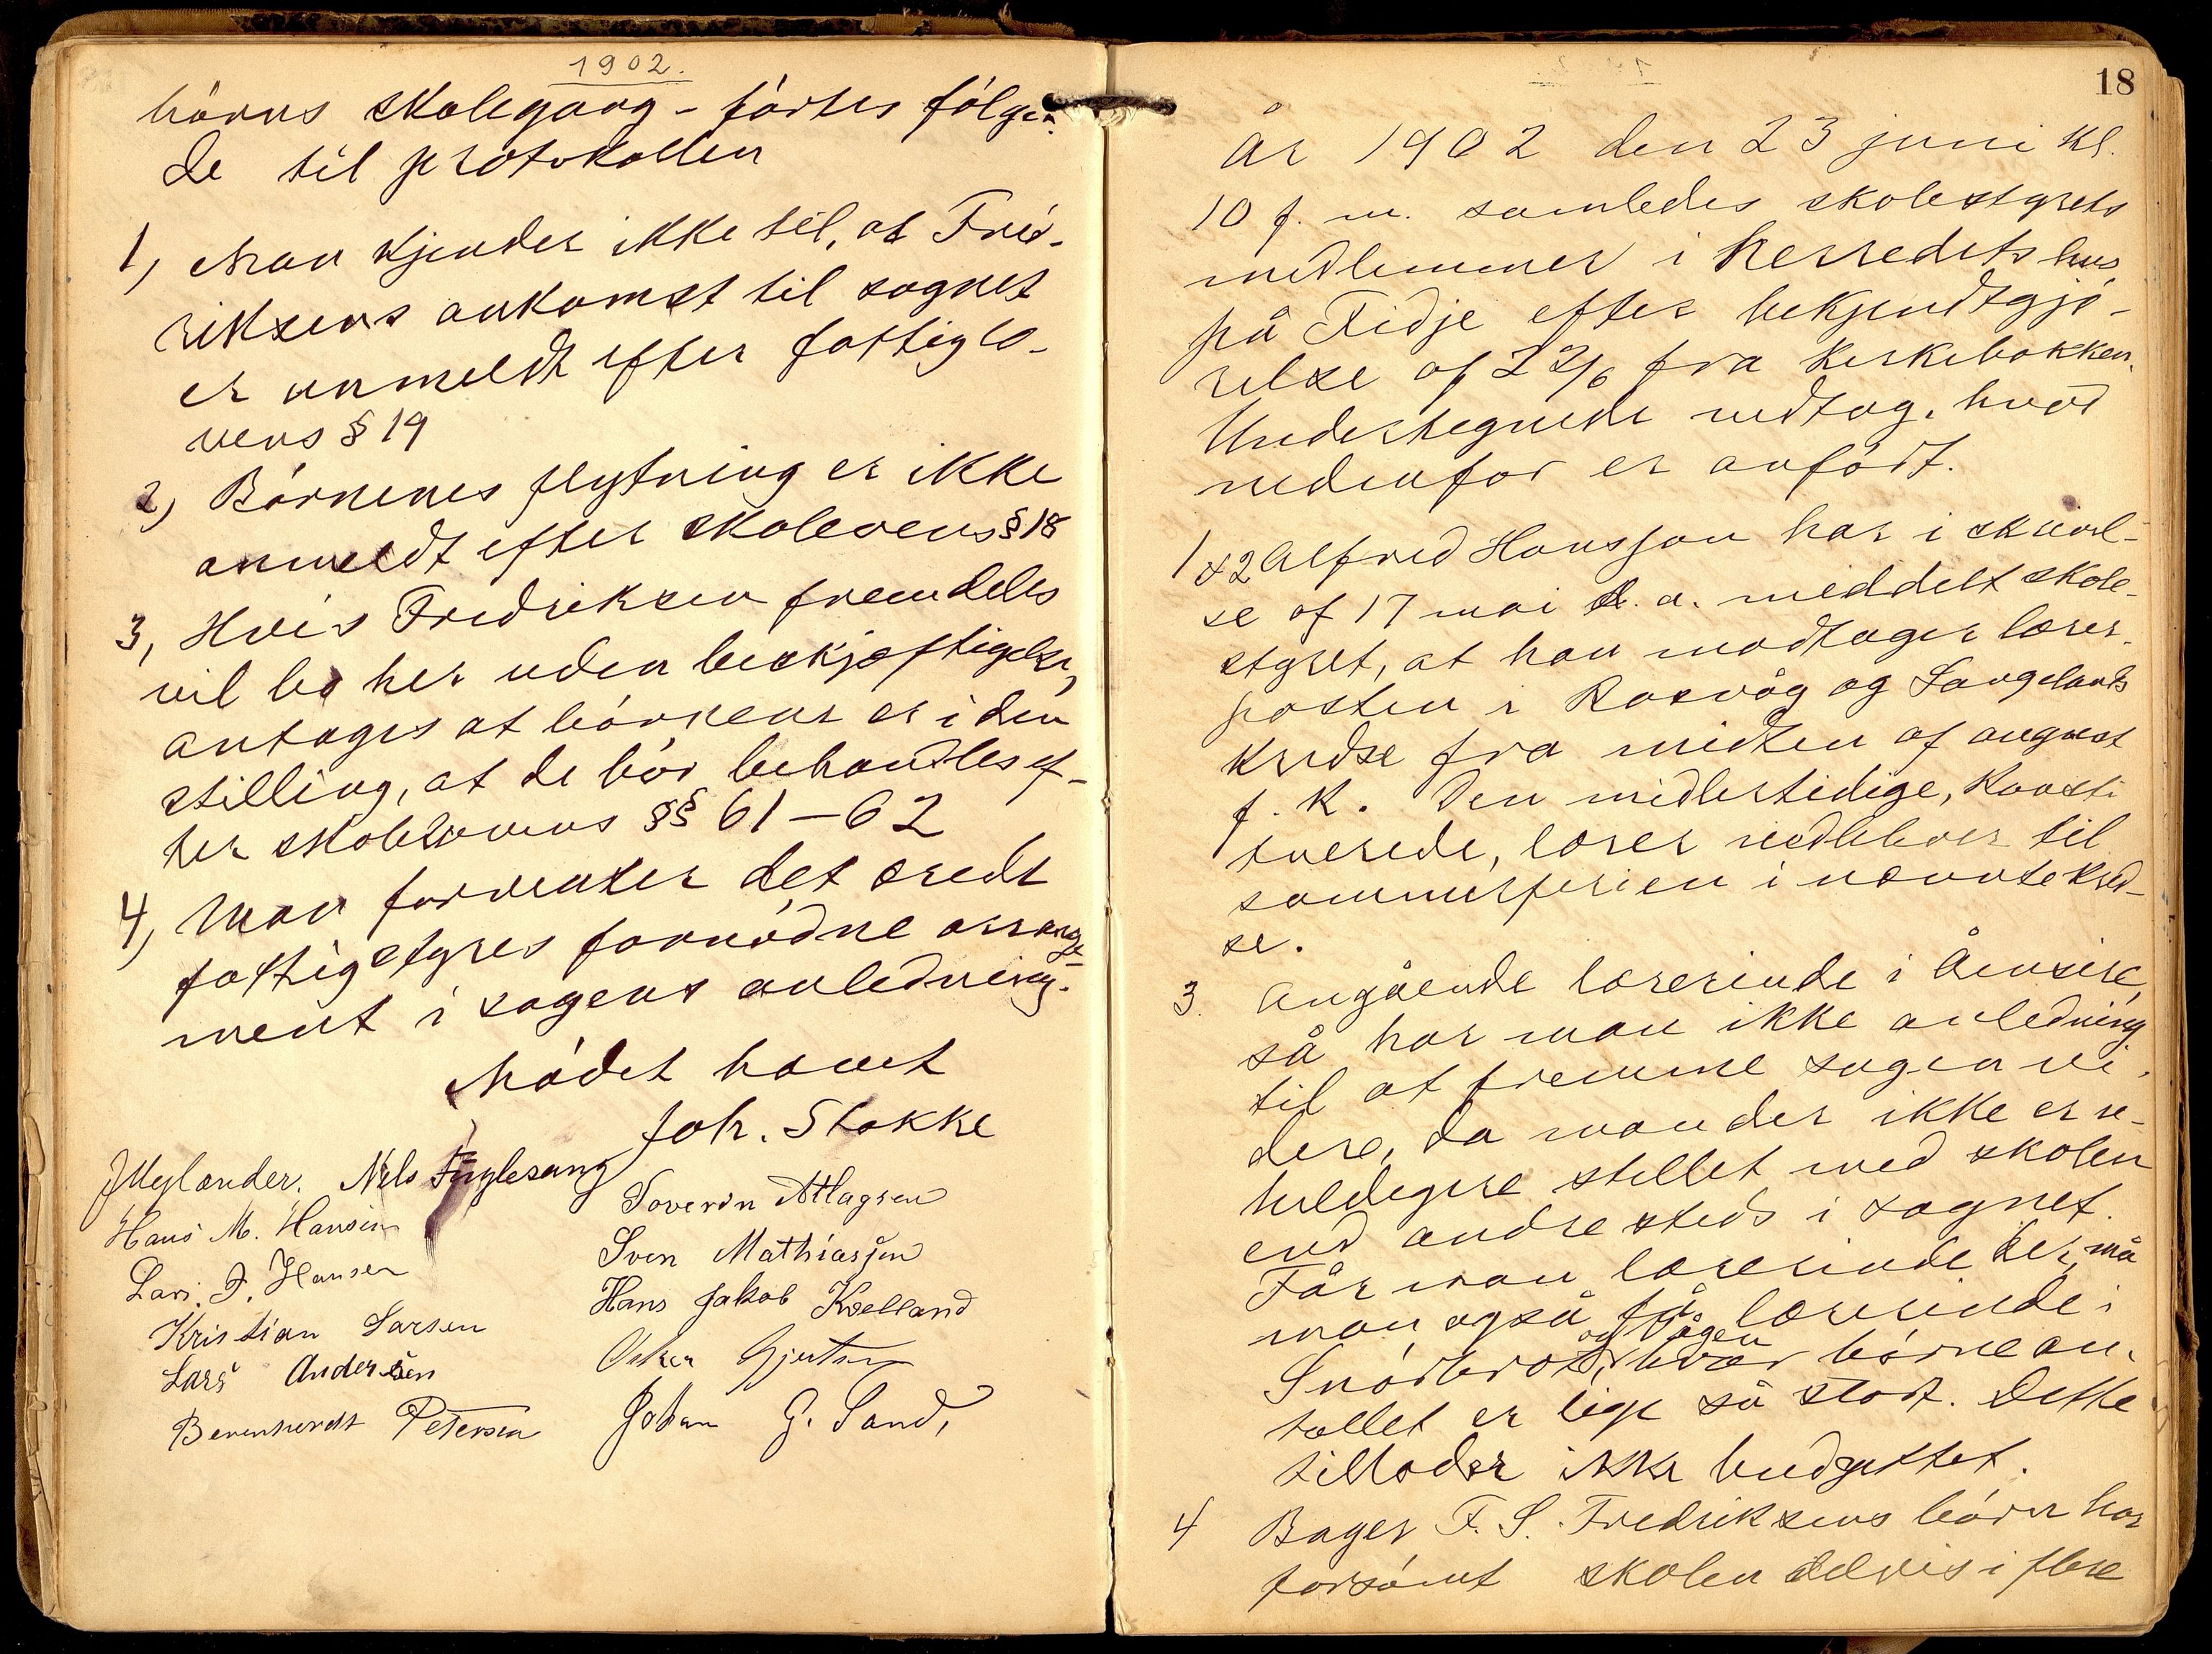 1902.
börns skolegang - förtes följen-
de til protokollen
1, Man kjender ikke til, at Fred-
riksens ankomst til sognet
er anmeldt efter fattiglo-
vens § 19
2, Börnenes flytning er ikke
anmeldt efter skolevens § 18
3, Hvis Fredriksen fremdeles
vil bo her uden beskjæftigelse,
antages at börnene er i den
stilling, at de bör behandles ef-
ter skolelovens §§ 61-62
4, Man forventer det ærede
fattigstyres fornödne arrange-
ment i sagens anledning.
Mödet hævet
Joh. Stokke
J Mylander. Nels Fuglesang
Hans M. Hansen
Lars. F. Hansen
Kristian Larsen
Lars Andersen
Berenhardt Petersen
Severin Atlagsen
Sven Mathiassen
Hans Jakob Kvelland
Osker Gjertsen
Johan G. Sand,
18
År 1902 den 23 juni kl.
10 f. m. samledes skolestyrets
medlemmer i herredets hus
på Fidje efter bekjendtgjö-
relse af 22/6 fra kirkebakken.
Undertegnede vedtog, hvad
nedenfor er anfört.
1 & 2 Alfred Hansson har i skrivel-
se af 17 mai d. a. meddelt skole-
styret, at han modtager lærer-
posten i Rasvåg og Langelands
kredse fra midten af august
f. k. Den midlertidige, konsti-
tuerede, lærer vedbliver til
sommerferien i nævnte kred-
se.
3. Angående lærerinde i Åensire,
så har man ikke anledning
til at fremme sagen vi-
dere, da man der ikke er u-
heldigere stillet med skolen
end andre steds i sognet.
Får man lærerinde der, må
man også få lærerinde i
Snörbrot og Vågen, hvor börnean-
tallet er lige så stort. Dette
tillader ikke budgettet.
4 Bager F. S. Fredriksens börn har
forsömt skolen delvis i flere